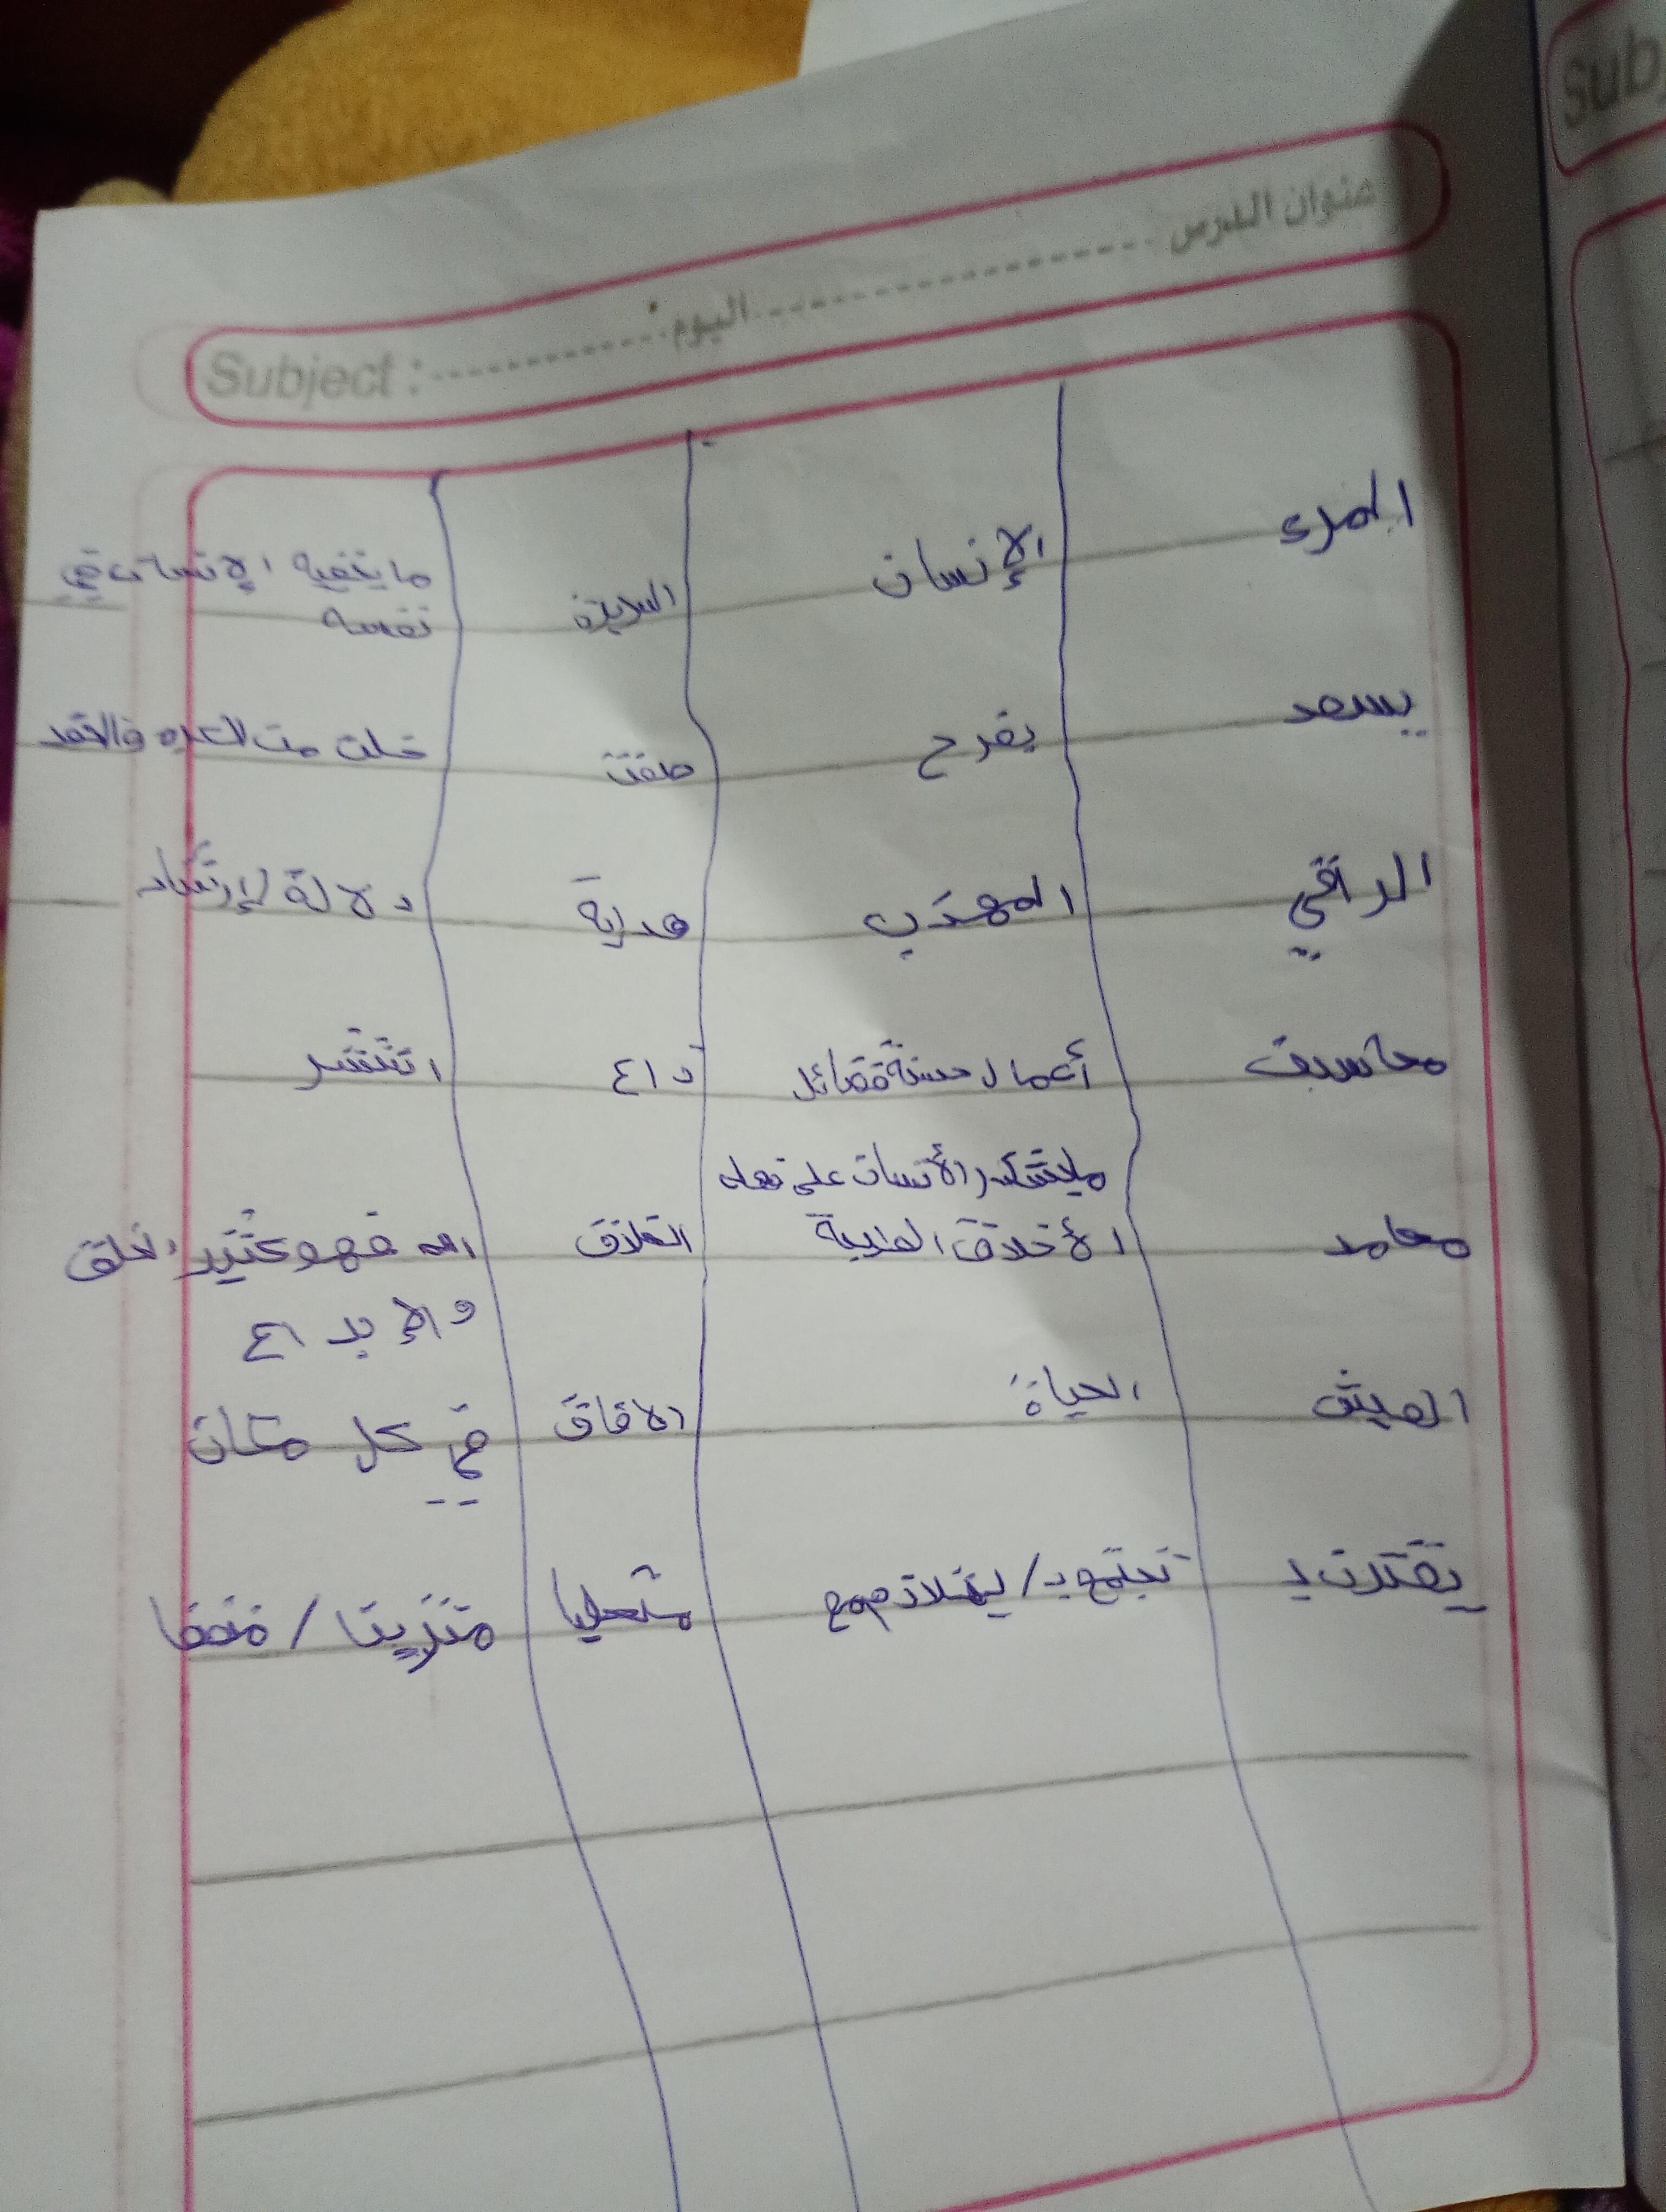 Subj
عنوان الدرس ........ اليوم ........ Subject :
المرء الإنسان السريرة ما يخفيه الإنسان في
نفسه
يسعد يفرح صفت خلت من الكره والحقد
الراقي المهذب هداية دلالة لإرشاد
محاسن أعمال حسنة فضائل ذاع انتشر
ما يشكر الأنسان على فعله
محامد الأخلاق الطيبة الخلاق الله فهو كثير الخلق
والإبداع
العيش الحياة الافاق في كل مكان
يقترن بـ تجتمع بـ / يتلازم مع متحليا متزينا /